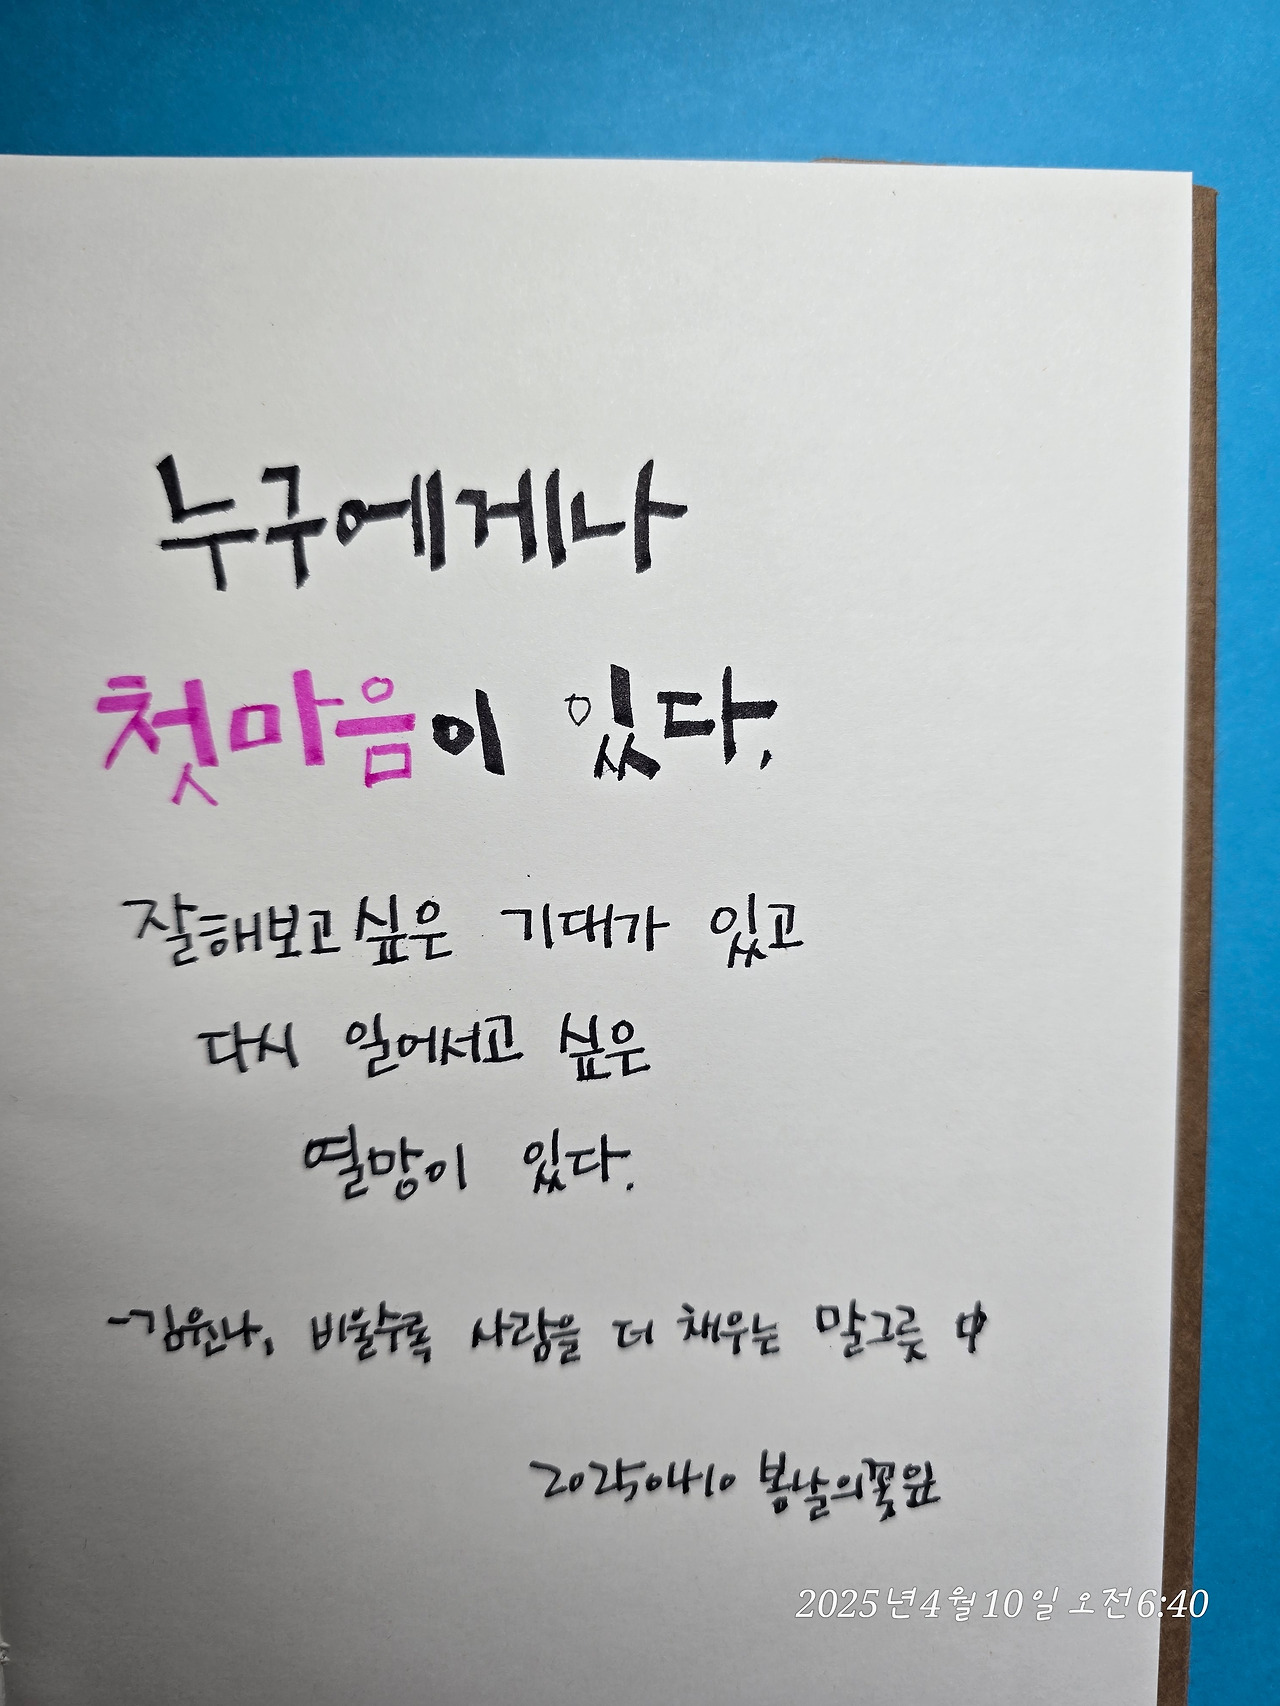 누구에게나
첫마음이 있다.
잘해보고싶은 기대가 있고
다시 일어서고 싶은
열망이 있다.
-김원나, 비울수록 사람을 더 채우는 말그릇 中
20250410 봄날의꽃잎
2025년 4월 10일 오전 6:40